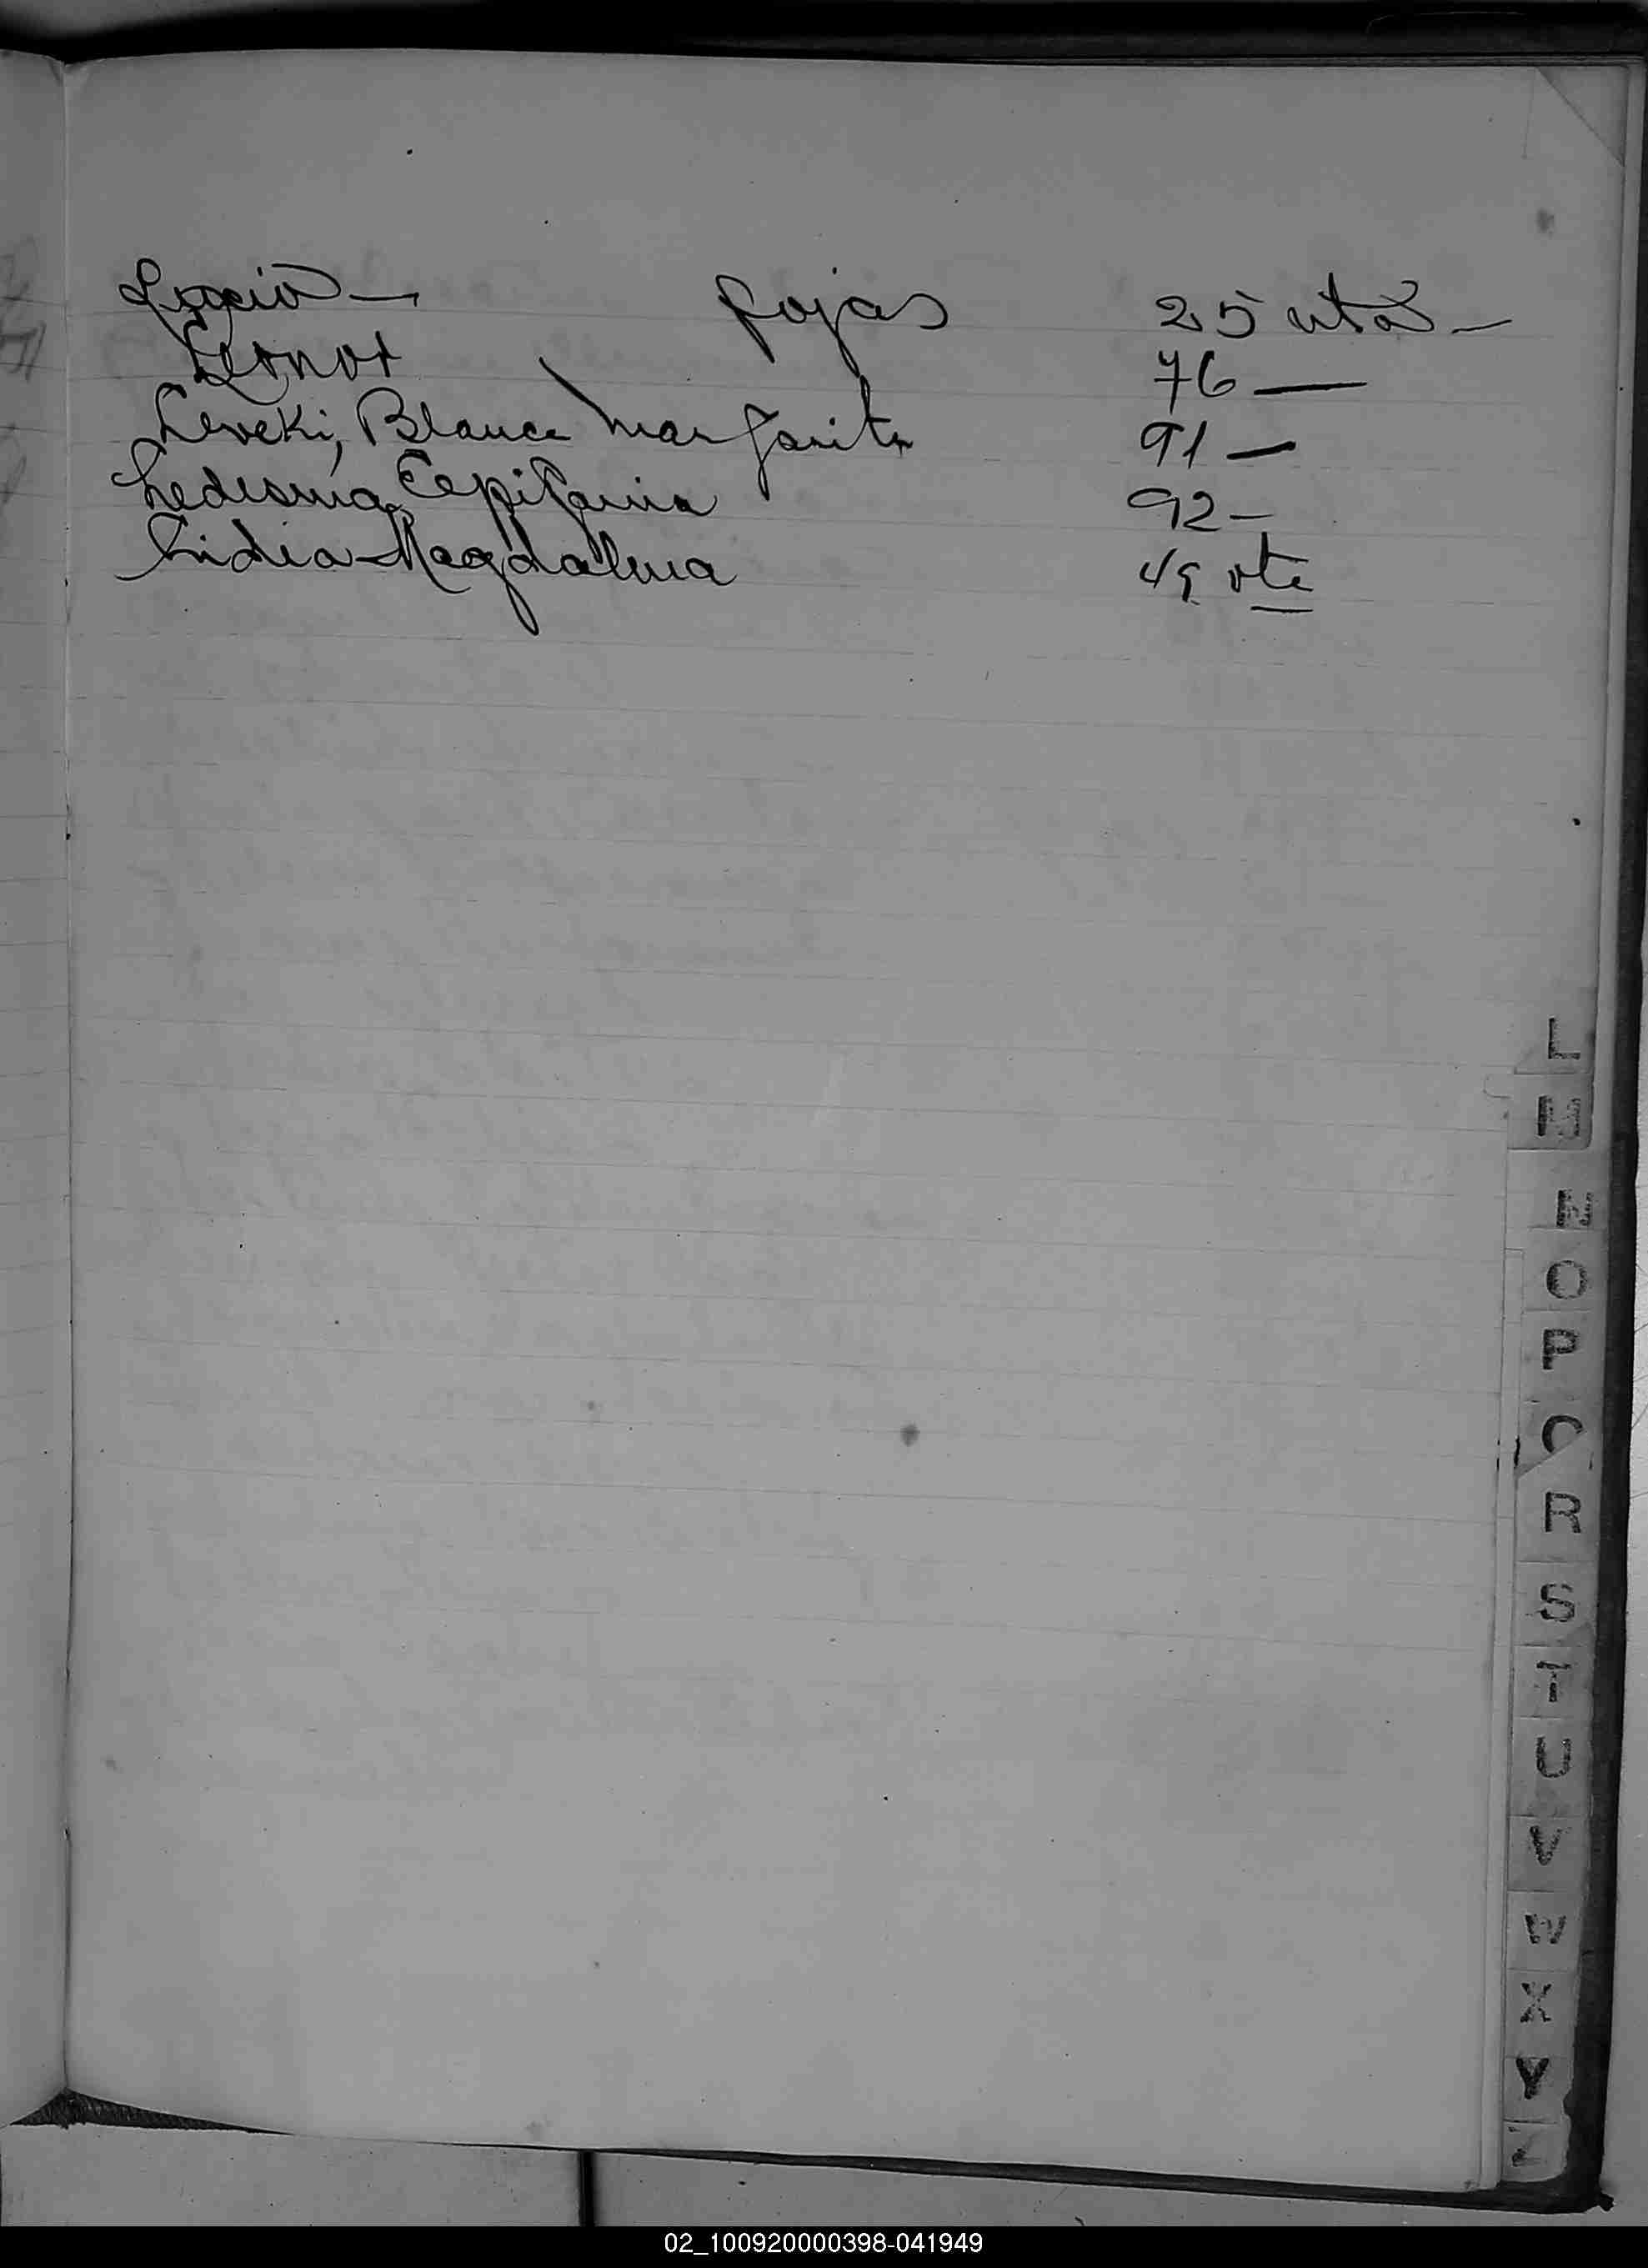 fojas 25 vta —
Leonor 76 —
Leveki, Blanca Margarita 91 —
Ledesma, Epifania 92 —
Lidia Magdalena 49 vta
L
M
N
O
P
R
S
T
U
V
W
X
Y
02_100920000398-041949